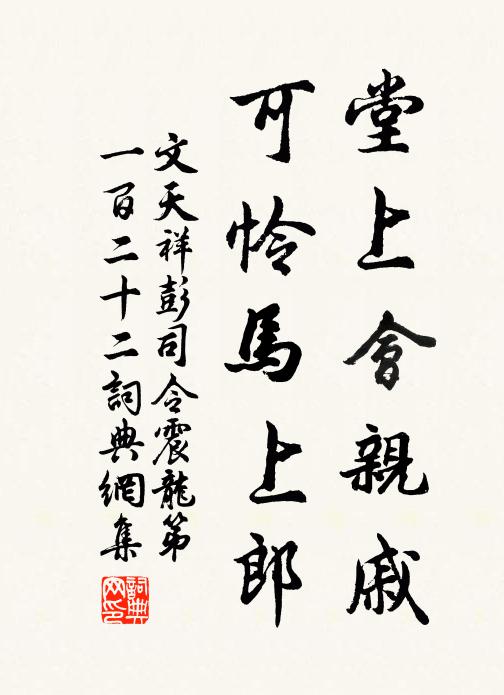 堂上會親戚
可憐馬上郎
文天祥彭司令震龍第
一百二十二詞典網集
詞典
网印